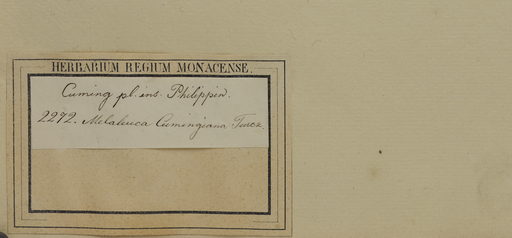 HERBARIUM REGIUM MONACENSE.
Cuming pl. ins. Philippin.
2272. Melaleuca Cumingiana Turcz.